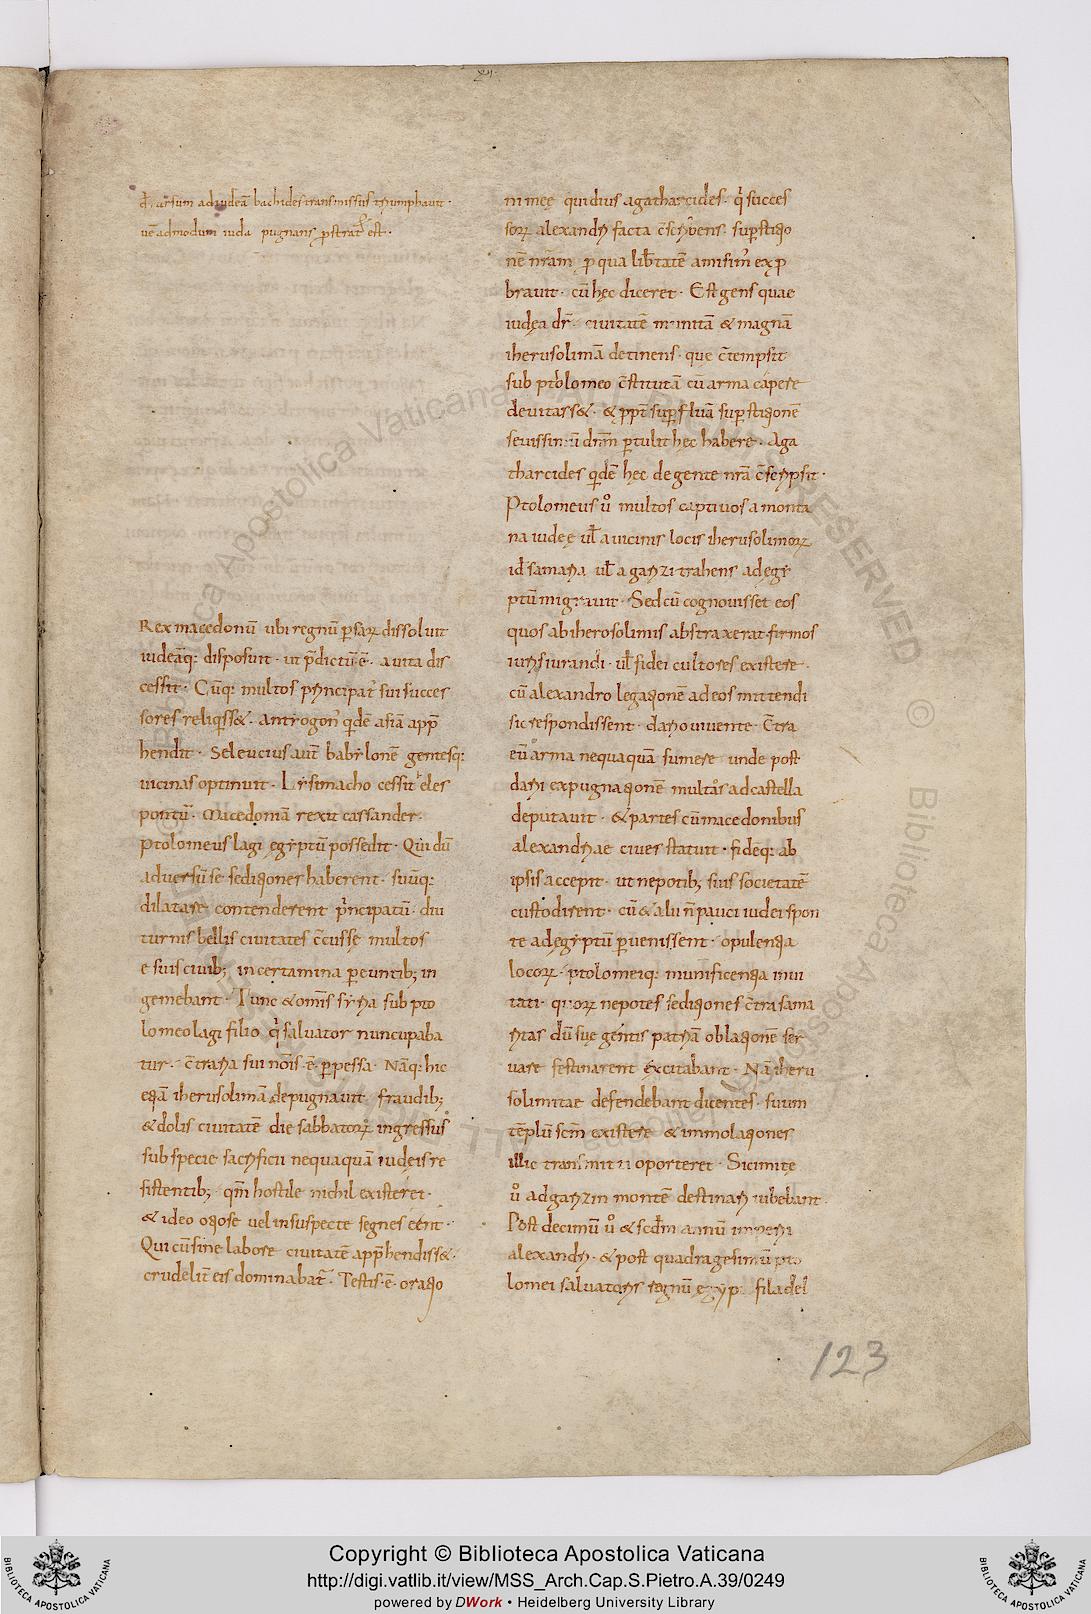 xii.
q̄ rursum ad iudeā bachides transmissus triumphavit.
uē admodum iuda pugnans p̄strat' est.
Rex macedonū ubi regnū p̱sarꝝ dissolvit
iudeāq; disposuit. ut p̄dictū ē. a vita dis
cessit. Cūq; multos principat' sui succes
sores reliq̄ss&. antigon' q̄dē asiā app̄
hendit. Seleucius aut̄ babylonē gentesq;
vicinas optinuit. Lysimacho cessit eles
pontū. Macedoniā rexit cassander.
Ptolomeus lagi ęgyptū possedit. Qui dū
adversū se seditiones haberent. suūq;
dilatare contenderent p̄ncipatū. diu
turnis bellis civitates c̄cusse multos
e suis civib; in certamina p̱euntib; in
gemebant. Tunc & om̄s syria sub pto
lomeo lagi filio q̄ salvator nuncupaba
tur. c̄traria sui nōis ē p̱pessa. Nāq; hic
etiā iherusolimā depugnavit. fraudib;
& dolis civitatē die sabbatorꝝ ingressus
sub specie sacrificii nequaquā iudęis re
sistentib; qm̄ hostile nichil existeret.
& ideo otiose vel insuspecte segnes erant.
Qui cū sine labore civitatē app̄hendiss&.
crudelit̄ eis dominabat̄. Testis ē. oratio
ni meę qui dius agatharcides. q̄ succes
sorꝝ alexandri facta c̄scribens. sup̱stitio
nē nr̄am p̱ qua liḇtatē amisim' exp̱
bravit. cū hęc diceret. Est gens quae
iudęa dr̄. civitatē munitā & magnā
iherusolimā detinens. que c̄tempsit
sub ptholomeo c̄stitutā cū arma capere
devitass&. & pp̄t sup̱fluā sup̱stitionē
sevissimū dn̄m p̱tulit hęc habere. Aga
tharcides q̄dē hęc de gente nr̄a c̄scripsit.
Ptolomeus ů multos captivos a monta
na iudeę ul̄ a vicinis locis iherusolimorꝝ
id' samaria ul̄ a garizi trahens ad ęgy
ptū migravit. Sed cū cognovisset eos
quos ab iherosolimis abstraxerat firmos
iurisiurandi. ul̄ fidei cultores existere.
cū alexandro legationē ad eos mittendi
sic respondissent. dario vivente c̄tra
eū arma nequaquā sumere unde post
darii expugnationē multos ad castella
deputavit. & partes cū macedonibus
alexandriae cives statuit. fidēq; ab
ipsis accepit. ut nepotib; suis societatē
custodirent. cū & alii n̄ pauci iudei spon
te ad ęgyptū p̱venissent. opulentia
locorꝝ. ptolomeiq; munificentia invi
tati. quorꝝ nepotes seditiones c̄tra sama
ritas dū sue gentis patriā oblationē ser
vare festinarent excitabant. Nā iheru
solimitae defendebant dicentes. suum
tēplū sc̄m existere & immolationes
illic transmitti oporteret. Sicimitę
ů ad garizin montē destinari iubebant.
Post decimū ů & sc̄dm annū imperii
alexandri. & post quadragesimū pto
lomei salvatoris regnū filadel
123
Copyright © Biblioteca Apostolica Vaticana
http://digi.vatlib.it/view/MSS_Arch.Cap.S.Pietro.A.39/0249
powered by DWork • Heidelberg University Library